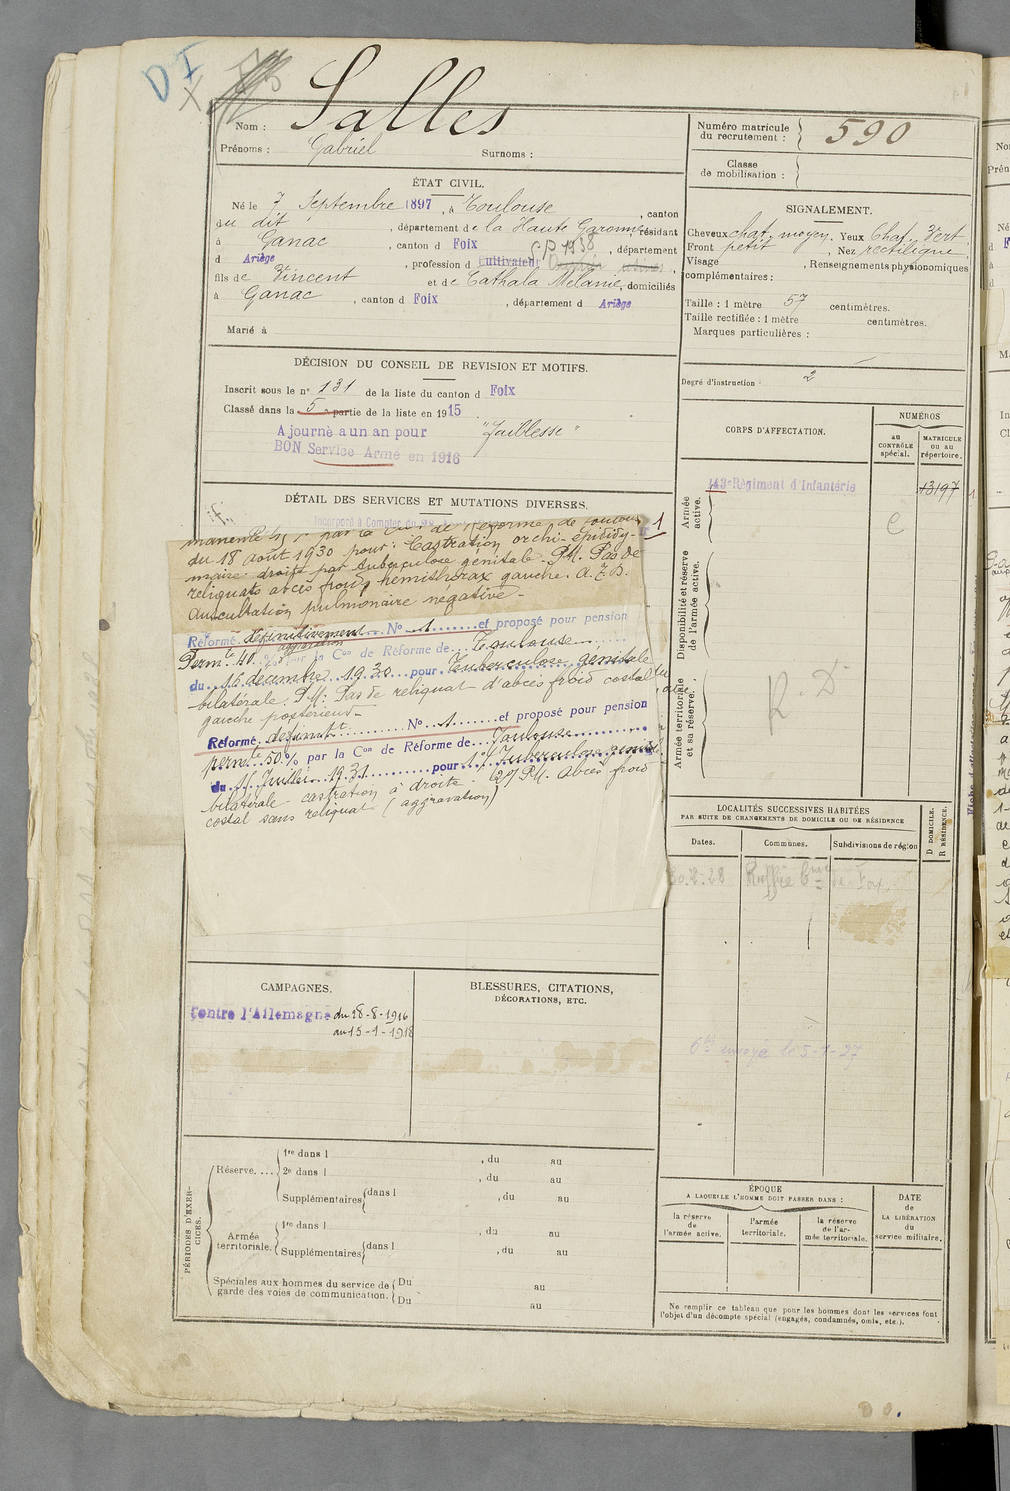 D I
X
Nom : Salles
Prénoms : Gabriel Surnoms :
Numéro matricule du recrutement : 590
Classe de mobilisation :
ÉTAT CIVIL.
Né le 7 Septembre 1897, à Toulouse, canton
du dit, département de la Haute Garonne, résidant
à Ganac, canton d Foix, département
S.P. 1938
d Ariège, profession d Cultivateur
fils de Vincent et de Cathala Mélanie, domiciliés
à Ganac, canton d Foix, département d Ariège
Marié à
SIGNALEMENT.
Cheveux chat. moyen. Yeux Chat. Vert
Front petit, Nez rectiligne
Visage, Renseignements physionomiques
complémentaires :
Taille : 1 mètre 57 centimètres.
Taille rectifiée : 1 mètre centimètres.
Marques particulières :
Degré d'instruction : 2
DÉCISION DU CONSEIL DE REVISION ET MOTIFS.
Inscrit sous le n° 131 de la liste du canton d Foix
Classé dans la 5e partie de la liste en 1915.
Ajourné a un an pour "Faiblesse"
BON Service Armé en 1916
CORPS D'AFFECTATION.
NUMÉROS
au CONTRÔLE spécial.
MATRICULE ou au répertoire.
Armée active.
143e Régiment d'Infanterie
13197
C
Disponibilité et réserve de l'armée active.
Armée territoriale et sa réserve.
R. D
DÉTAIL DES SERVICES ET MUTATIONS DIVERSES.
Incorporé à Compter du
1
du 18 août 1930 pour : Castration orchi-épididy-
maire droite par tuberculose génitale. P.M. Pas de
reliquats abcès froid hémithorax gauche. A.F.B.
Auscultation pulmonaire négative -
Réformé définitivement N° 1 et proposé pour pension
aggravation
Permte 40 % par la Con de Réforme de Toulouse
du 16 décembre 1930 pour Tuberculose génitale
bilatérale. P.M: Pas de reliquat d'abcès froid costal
gauche postérieur -
Réformé définitt N° 1 et proposé pour pension
permte 50 % par la Con de Réforme de Toulouse
du 15 Juillet 1931 pour 1°/ Tuberculose génitale
bilatérale castration à droite (2°) P.M. Abcès froid
costal sans reliquat (aggravation)
LOCALITÉS SUCCESSIVES HABITÉES
PAR SUITE DE CHANGEMENTS DE DOMICILE OU DE RÉSIDENCE
Dates. Communes. Subdivisions de région
D DOMICILE. R RÉSIDENCE.
CAMPAGNES.
Contre l'Allemagne du 28-8-1916
au 15-1-1918
BLESSURES, CITATIONS,
DÉCORATIONS, ETC.
envoyé le 5-1-27
PÉRIODES D'EXERCICES.
Réserve....
1re dans l , du au
2e dans l , du au
Supplémentaires dans l , du au
Armée territoriale.
1re dans l , du au
Supplémentaires dans l , du au
Spéciales aux hommes du service de garde des voies de communication.
Du au
Du au
ÉPOQUE
A LAQUELLE L'HOMME DOIT PASSER DANS :
la réserve de l'armée active.
l'armée territoriale.
la réserve de l'armée territoriale.
DATE de LA LIBÉRATION du service militaire.
Ne remplir ce tableau que pour les hommes dont les services font
l'objet d'un décompte spécial (engagés, condamnés, omis, etc.).